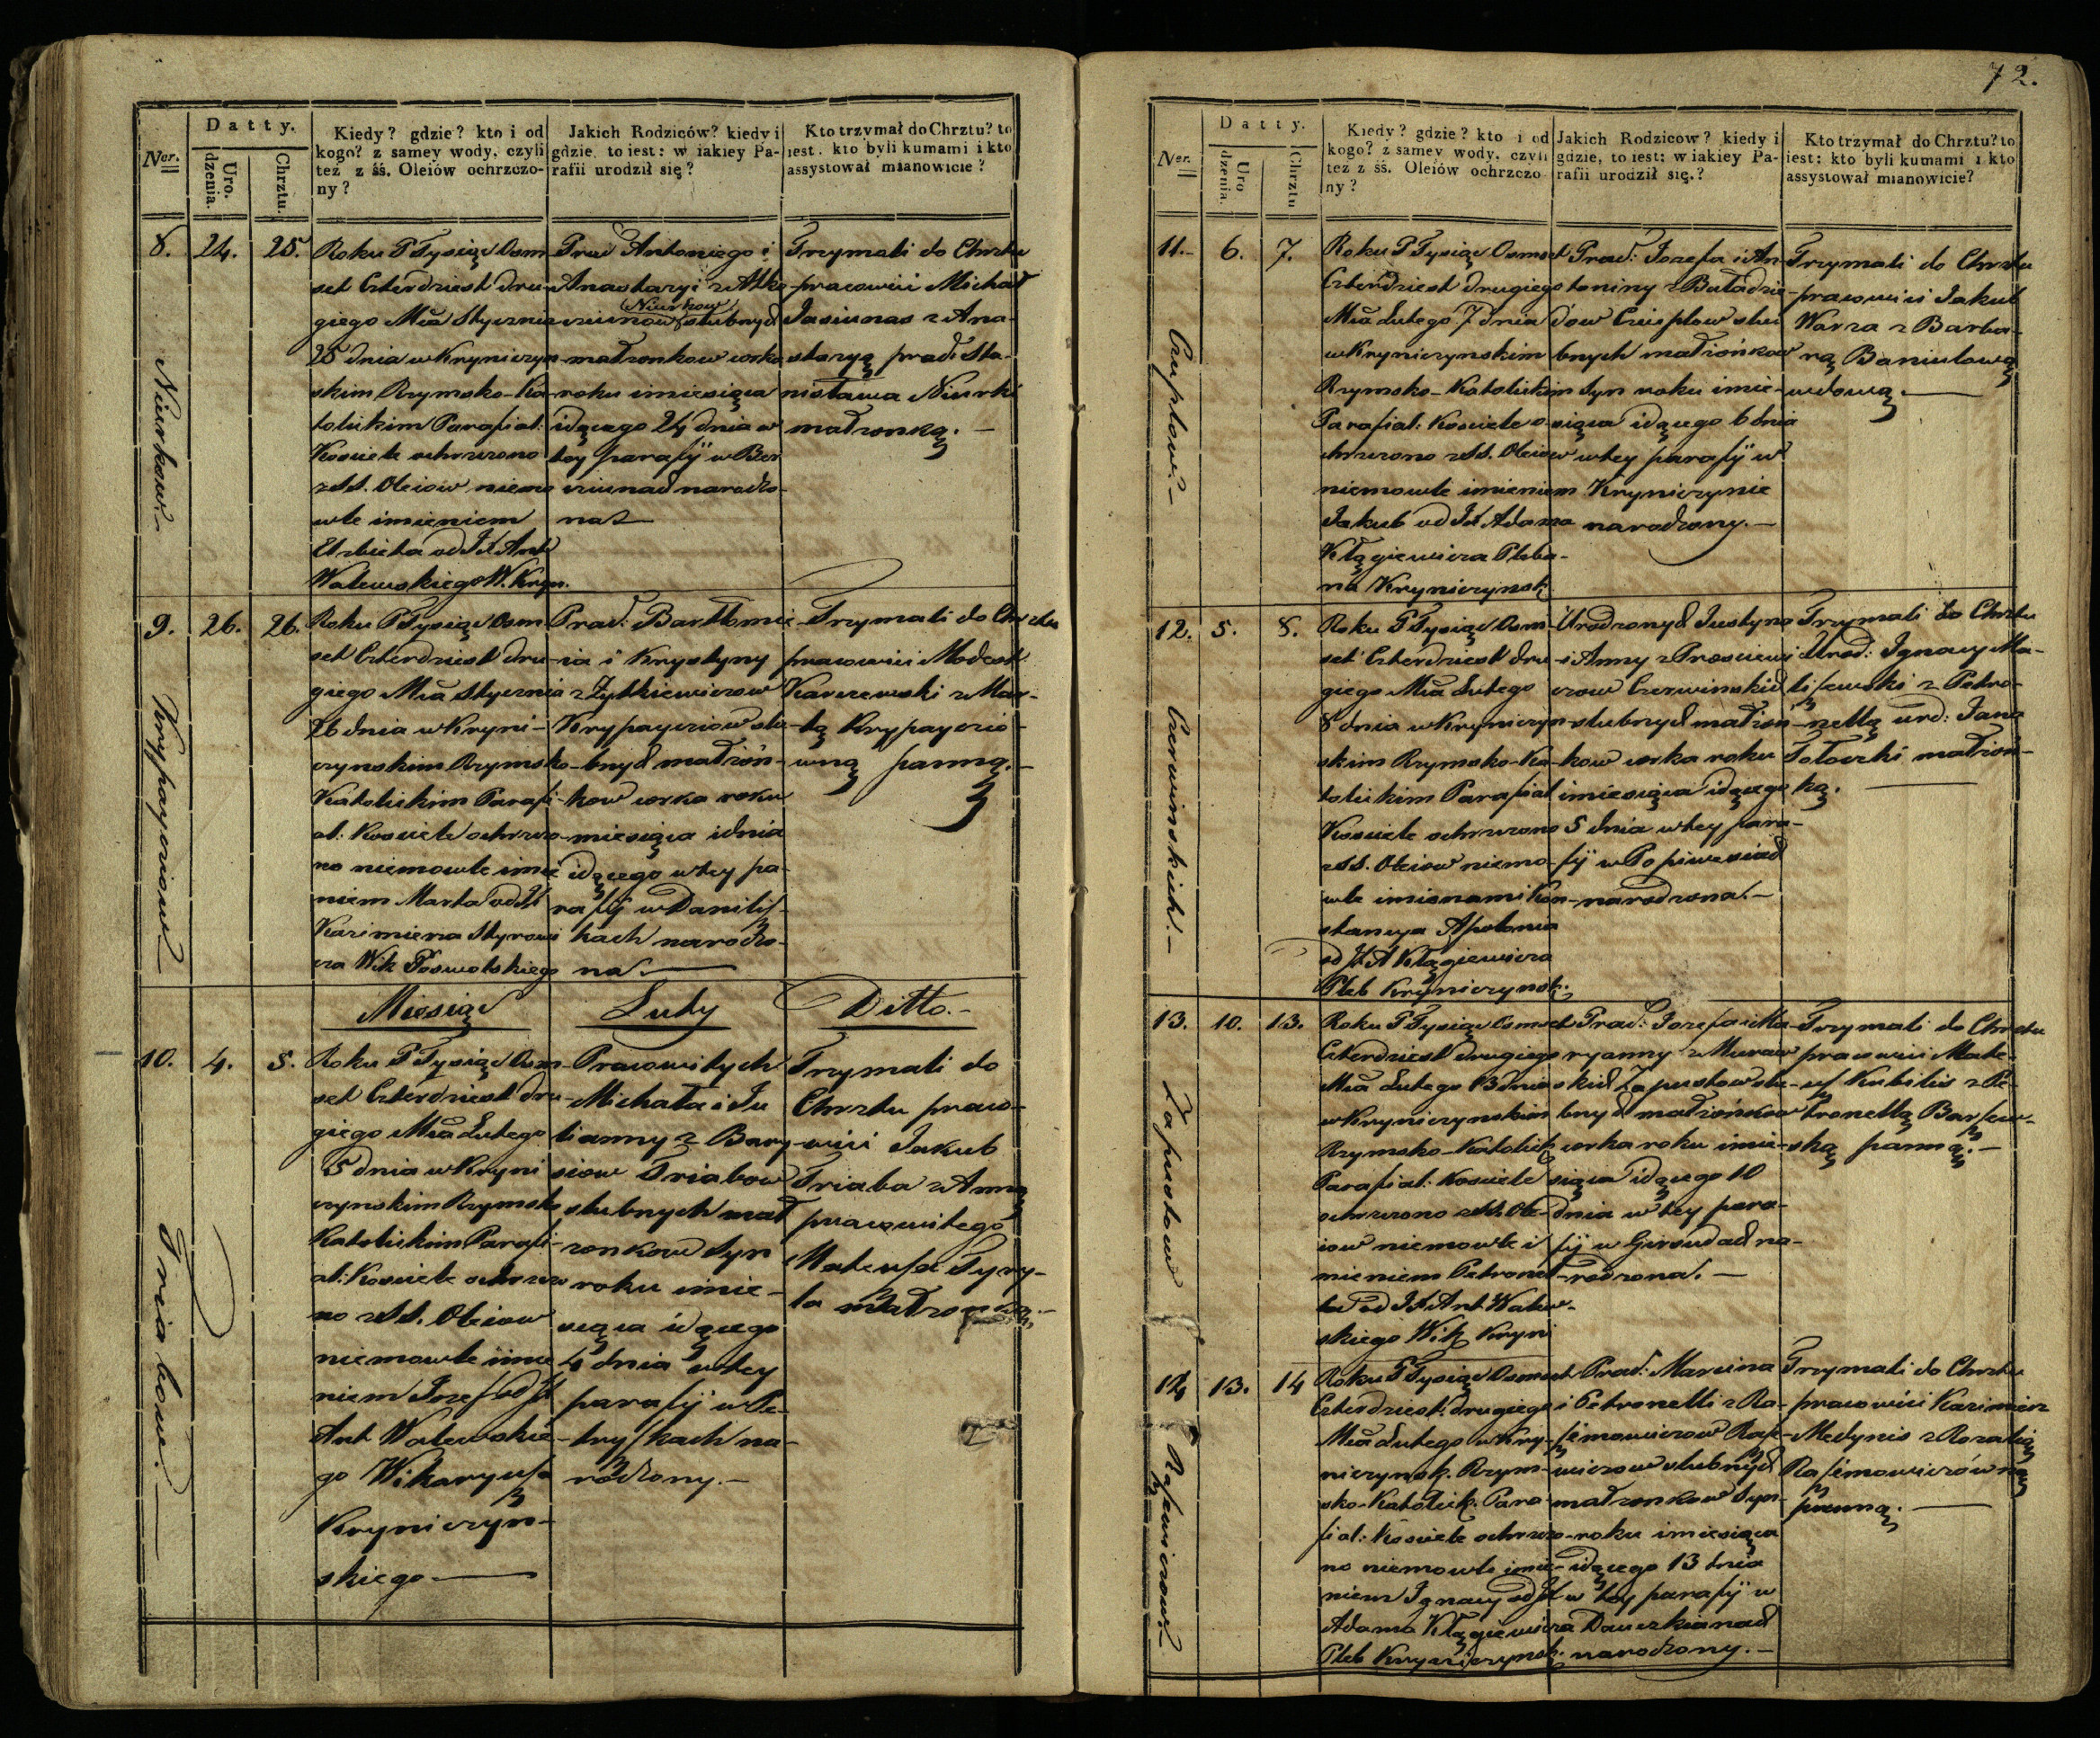 72.
Ner.
Datty.
Uro. dzenia.
Chrztu.
Kiedy? gdzie? kto i od
kogo? z samey wody, czyli
też z śś. Oleiów ochrzczo-
ny?
Jakich Rodziców? kiedy i
gdzie, to iest: w iakiey Pa-
rafii urodził się?
Kto trzymał do Chrztu? to
iest. kto byli kumami i kto
assystował mianowicie?
8.
24.
25.
Niurkow
Roku P Tysiąc Osm
set Czterdziest dru-
giego Mca Stycznia
25 dnia w Kryniczyn-
skim Rzymsko-Ka-
tolickim Parafial:
Kosciele ochrzczono
z SS. Oleiow niemo
wle imieniem
Elzbieta od JX Ant
Walewskiego W. Kryn.
Prac Antoniego i
Anastazyi z
Niurkow
slubnych
małzonkow corka
roku i miesiąca
idącego 24 dnia w
tey parafij w
narodzo-
na
Trzymali do Chrztu
pracowici Michał
Jasiunas z Ana-
stazyą prac: Sta-
nisława Niurki
małzonką.
9.
26.
26.
Krypayciow
Roku P Tysiąc Osm
set Czterdziest dru-
giego Mca Stycznia
26 dnia w Kryni-
czynskim Rzymsko-
Katolickim Parafi-
al: Kosciele ochrzczo-
no niemowle imie
niem Marta od JX
Kazimierza
Wik Poswolskiego
Prac: Bartłomie-
ia i Krystyny
z Zytkiewiczow
Krypayciow slu-
bnych małzon-
kow corka roku
miesiąca i dnia
idącego w tey pa-
rafij w Danilisz-
kach narodzo-
na
Trzymali do Chrztu
pracowici Modest
Karczewski z Mar-
tą Krypaycio-
wną panną.
Miesiąc
Luty
Ditto.
10.
4.
5.
Triabow.
Roku P Tysiąc Osm-
set Czterdziest dru-
giego Mca Lutego
5 dnia w Kryni
czynskim Rzymsko
Katolickim Parafi-
al: Kosciele ochrzczo
no z SS. Oleiow
niemowle imie
niem Jozef od JX
Ant Walewskie-
go Wikaryusza
Kryniczyn-
skiego
Pracowitych
Michała i Ju
lianny z Bary-
siow Triabow
slubnych mał
zonkow syn
roku i mie-
siąca idącego
4 dnia w tey
parafij w Pe-
tryszkach na-
rodzony.
Trzymali do
Chrztu praco-
wici Jakub
Triaba z Anną
pracowitego
Mateusza Tyry-
la małzonką.
Ner.
Datty.
Uro dzenia.
Chrztu
Kiedy? gdzie? kto i od
kogo? z samey wody, czyli
tez z śś. Oleiów ochrzczo
ny?
Jakich Rodzicow? kiedy i
gdzie, to iest: w iakiey Pa-
rafii urodził się.?
Kto trzymał do Chrztu? to
iest: kto byli kumami i kto
assystował mianowicie?
11.
6.
7.
Czuplow.
Roku P Tysiąc Osmset
Czterdziest drugiego
Mca Lutego 7 dnia
w Krynieczynskim
Rzymsko-Katolickim
Parafial: Kosciele o-
chrzczono z SS. Oleiow
niemowle imieniem
Jakub od JX Adama
Kłągiewicza Pleba-
na Kryniczynsk
Prac: Jozefa i An-
toniny z Buładzie-
dow Czuplow slu
bnych małzonkow
Syn roku i mie-
siąca idącego 6 dnia
w tey parafij w
Kryniczynie
narodzony.
Trzymali do Chrztu
pracowici Jakub
Warza z Barba-
rą Baniulową
wdową.
12.
5.
8.
Czerwinskich.
Roku P Tysiąc Osm-
set Czterdziest dru-
giego Mca Lutego
8 dnia w Kryniczyn-
skim Rzymsko-Ka-
tolickim Parafial
Kosciele ochrzczono
z SS. Oleiow niemo-
wle imionami Kon-
stancya Apolonia
od JX A Kłągiewicza
Pleb Kryniczynsk.
Urodzonych Justyna
i Anny z Prosciewi
czow Czerwinskich
slubnych małzon-
kow corka roku
i miesiąca idącego
5 dnia w tey para-
fij w Popiwesiach
narodzona.
Trzymali do Chrztu
Urod: Ignacy Ma-
liszewski z Petro-
nellą urd: Jana
Tołoczki małzon-
ką.
13.
10.
13.
Zapustow
Roku P Tysiąc Osmset
Czterdziest drugiego
Mca Lutego 13 dnia
w Kryniczynskim
Rzymsko-Katolick
Parafial: Kosciele
ochrzczono z SS. Ole-
iow niemowle i
mieniem Petronel-
la od JX Ant Walew-
skiego Wik Kryni
Prac: Jozefa i Ma-
ryanny z Muraw
skich Zapustow slu-
bnych małzonkow
corka roku i mie-
siąca idącego 10
dnia w tey para-
fij w Girsudach na-
rodzona.
Trzymali do Chrztu
pracowici Mate-
usz Kubilis z Pe-
tronellą Barszew-
ską panną.
14
13.
14
Raszewiczow
Roku P Tysiąc Osmset
Czterdziest drugiego
Mca Lutego w Kry-
niczynsk. Rzym-
sko-Katolick. Para
fial: Kosciele ochrzczo-
no niemowle imie-
niem Ignacy od JX
Adama Kłągiewicza
Pleb Kryniczynsk.
Prac: Marcina
i Petronelli z Ra-
szimowiczow
slubnych
małzonkow Syn
roku i miesiąca
idącego 13 dnia
w tey parafij w
narodzony.
Trzymali do Chrztu
pracowici Kazimierz
Medynis z Rozalią
Raszimowiczówną
panną.